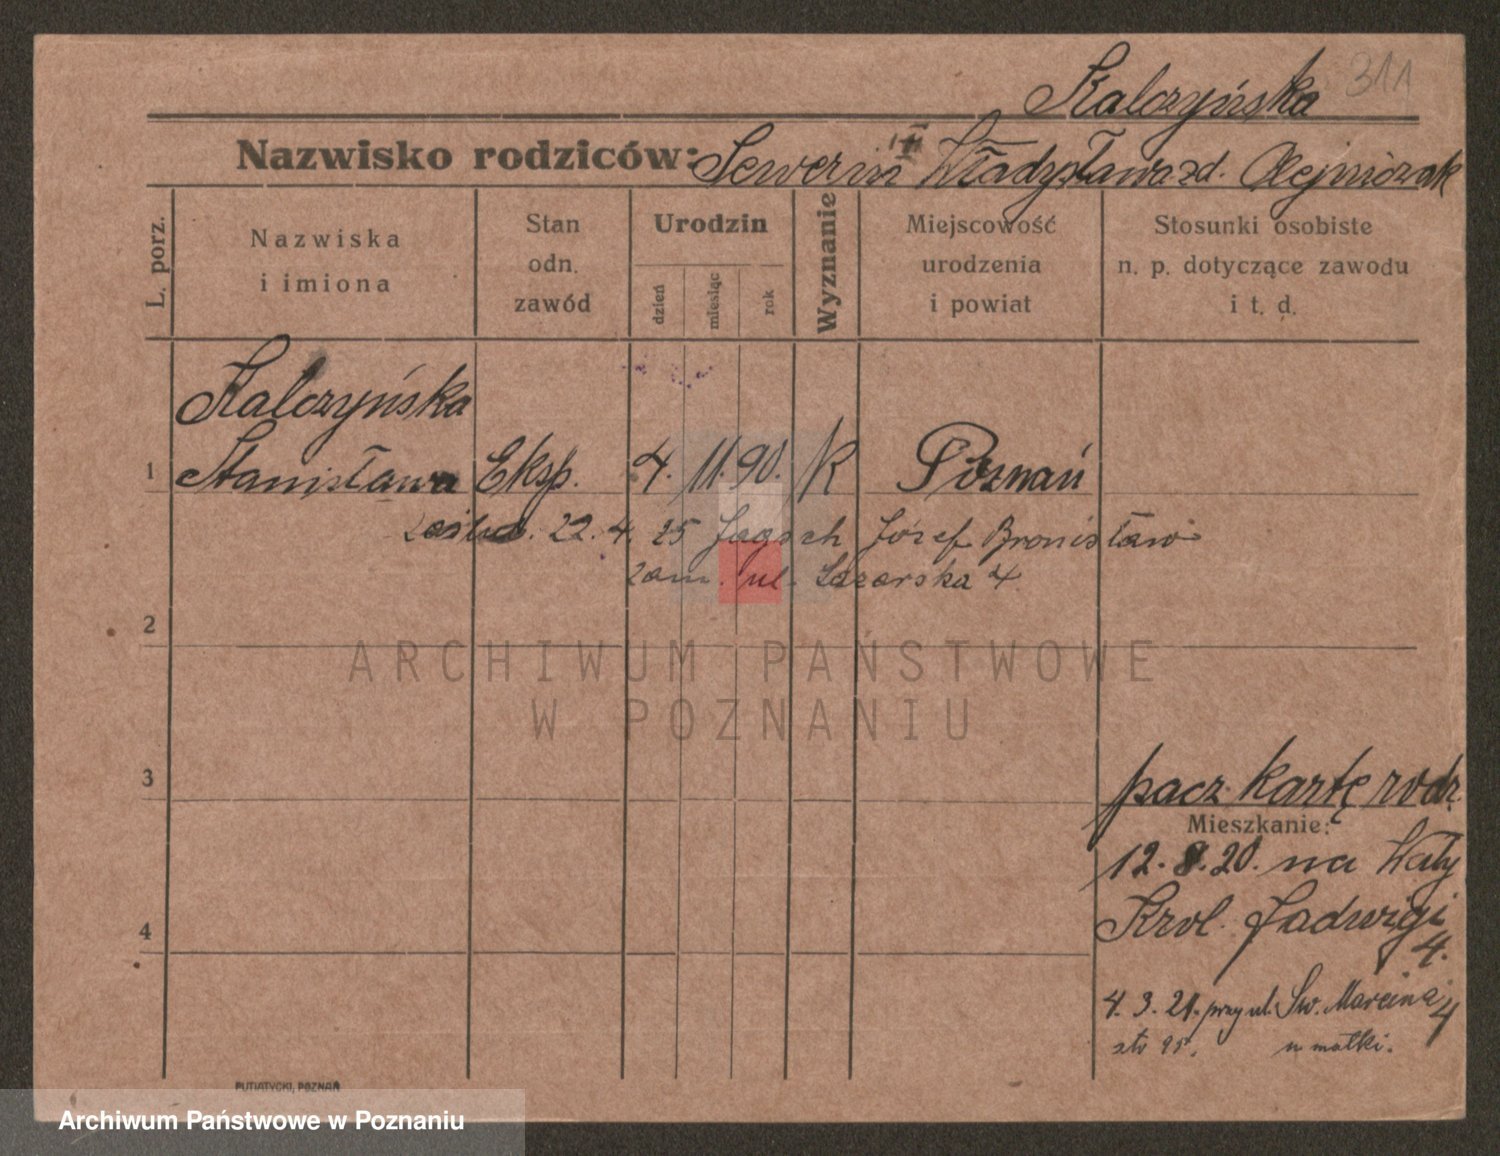 Kalczyńska 311
Nazwisko rodziców: Seweryn III Władysława zd. Olejniczak
L. porz.
Nazwiska i imiona
Stan odn. zawód
Urodzin
dzień
miesiąc
rok
Wyznanie
Miejscowość urodzenia i powiat
Stosunki osobiste n. p. dotyczące zawodu i t. d.
Kalczyńska
1 Stanisława Eksp. 4. 11. 90. K Poznań
zaślub. 22. 4. 25 Jagsch Józef Bronisław
zam. ul. Łazarska 4
2
ARCHIWUM PAŃSTWOWE
W POZNANIU
3
pacz kartę rodz.
Mieszkanie:
12. 8. 20. na Wały
Król. Jadwigi
4.
4
4. 3. 21. przy ul. Św. Marcina 4
u matki.
PUTIATYCKI, POZNAŃ
Archiwum Państwowe w Poznaniu